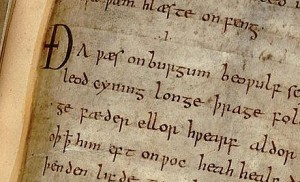 hlæste onfeng.
.I.
ÐA ƿæs onburgum beoƿulf sc
leod cyning longe þrage fol
ge fæder ellor hƿearf aldor
oþꝥ him eft onƿoc heah healf
þenden lifde